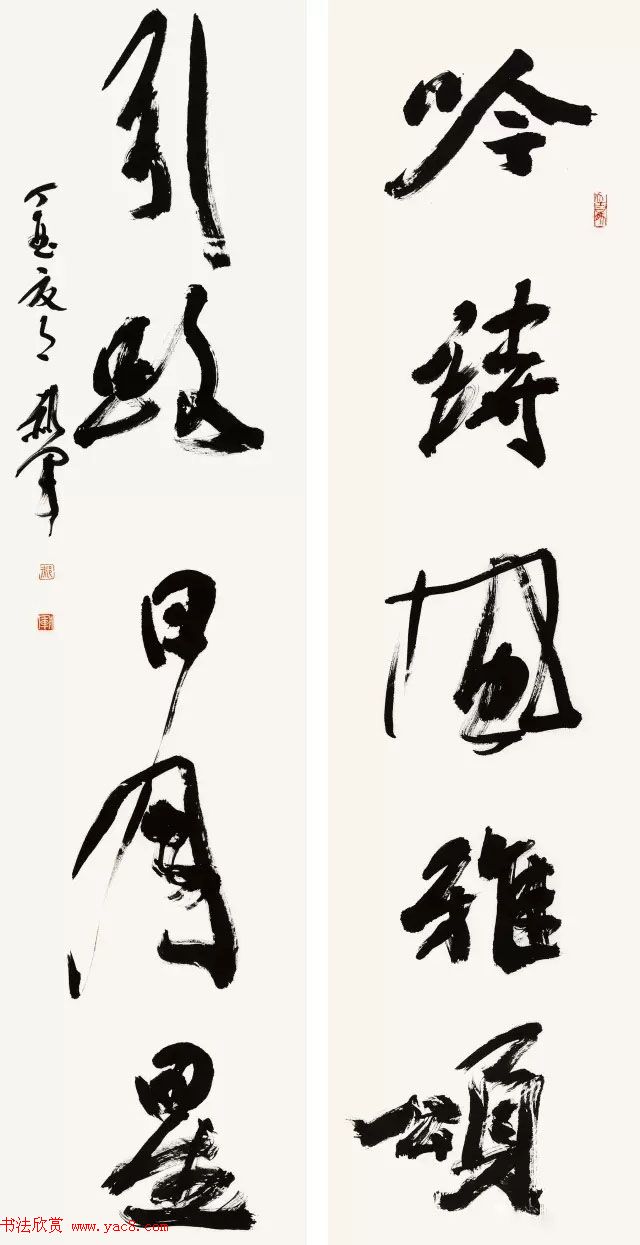 吟詩風雅頌
引路日月星
丁酉夏 郝軍
书法欣赏 www.yac8.com